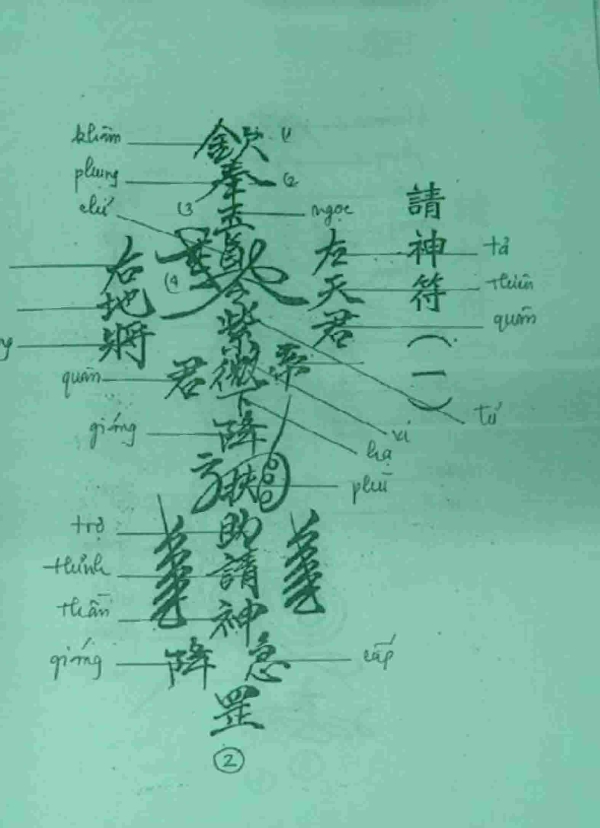 請神符(一)
khâm 欽 (1
phụng 奉 (2
chỉ (3 玉 ngọc
(4
右 左 tả
地 天 thiên
將 君 quân
紫 tử
quân 君 微 vi
下 hạ
giáng 降
扶 phù
trợ 助
thỉnh 請
thần 神
giáng 降 急 cấp
罡
2